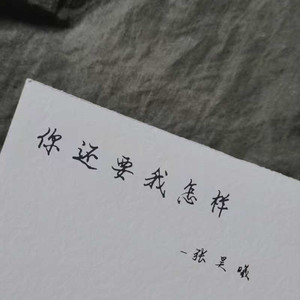 你还要我怎样
-张昊曦